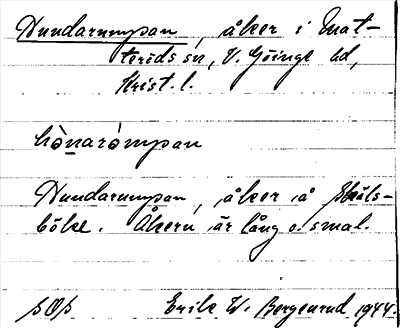 Hundarumpan, åker i Mat-
terids sn, V. Göinge hd,
Krist. l.
hònarómpan
Hundarumpan, åker å Skäls-
böke. Åkern är lång o. smal.
SOS Erik W. Bergenrud 1944.